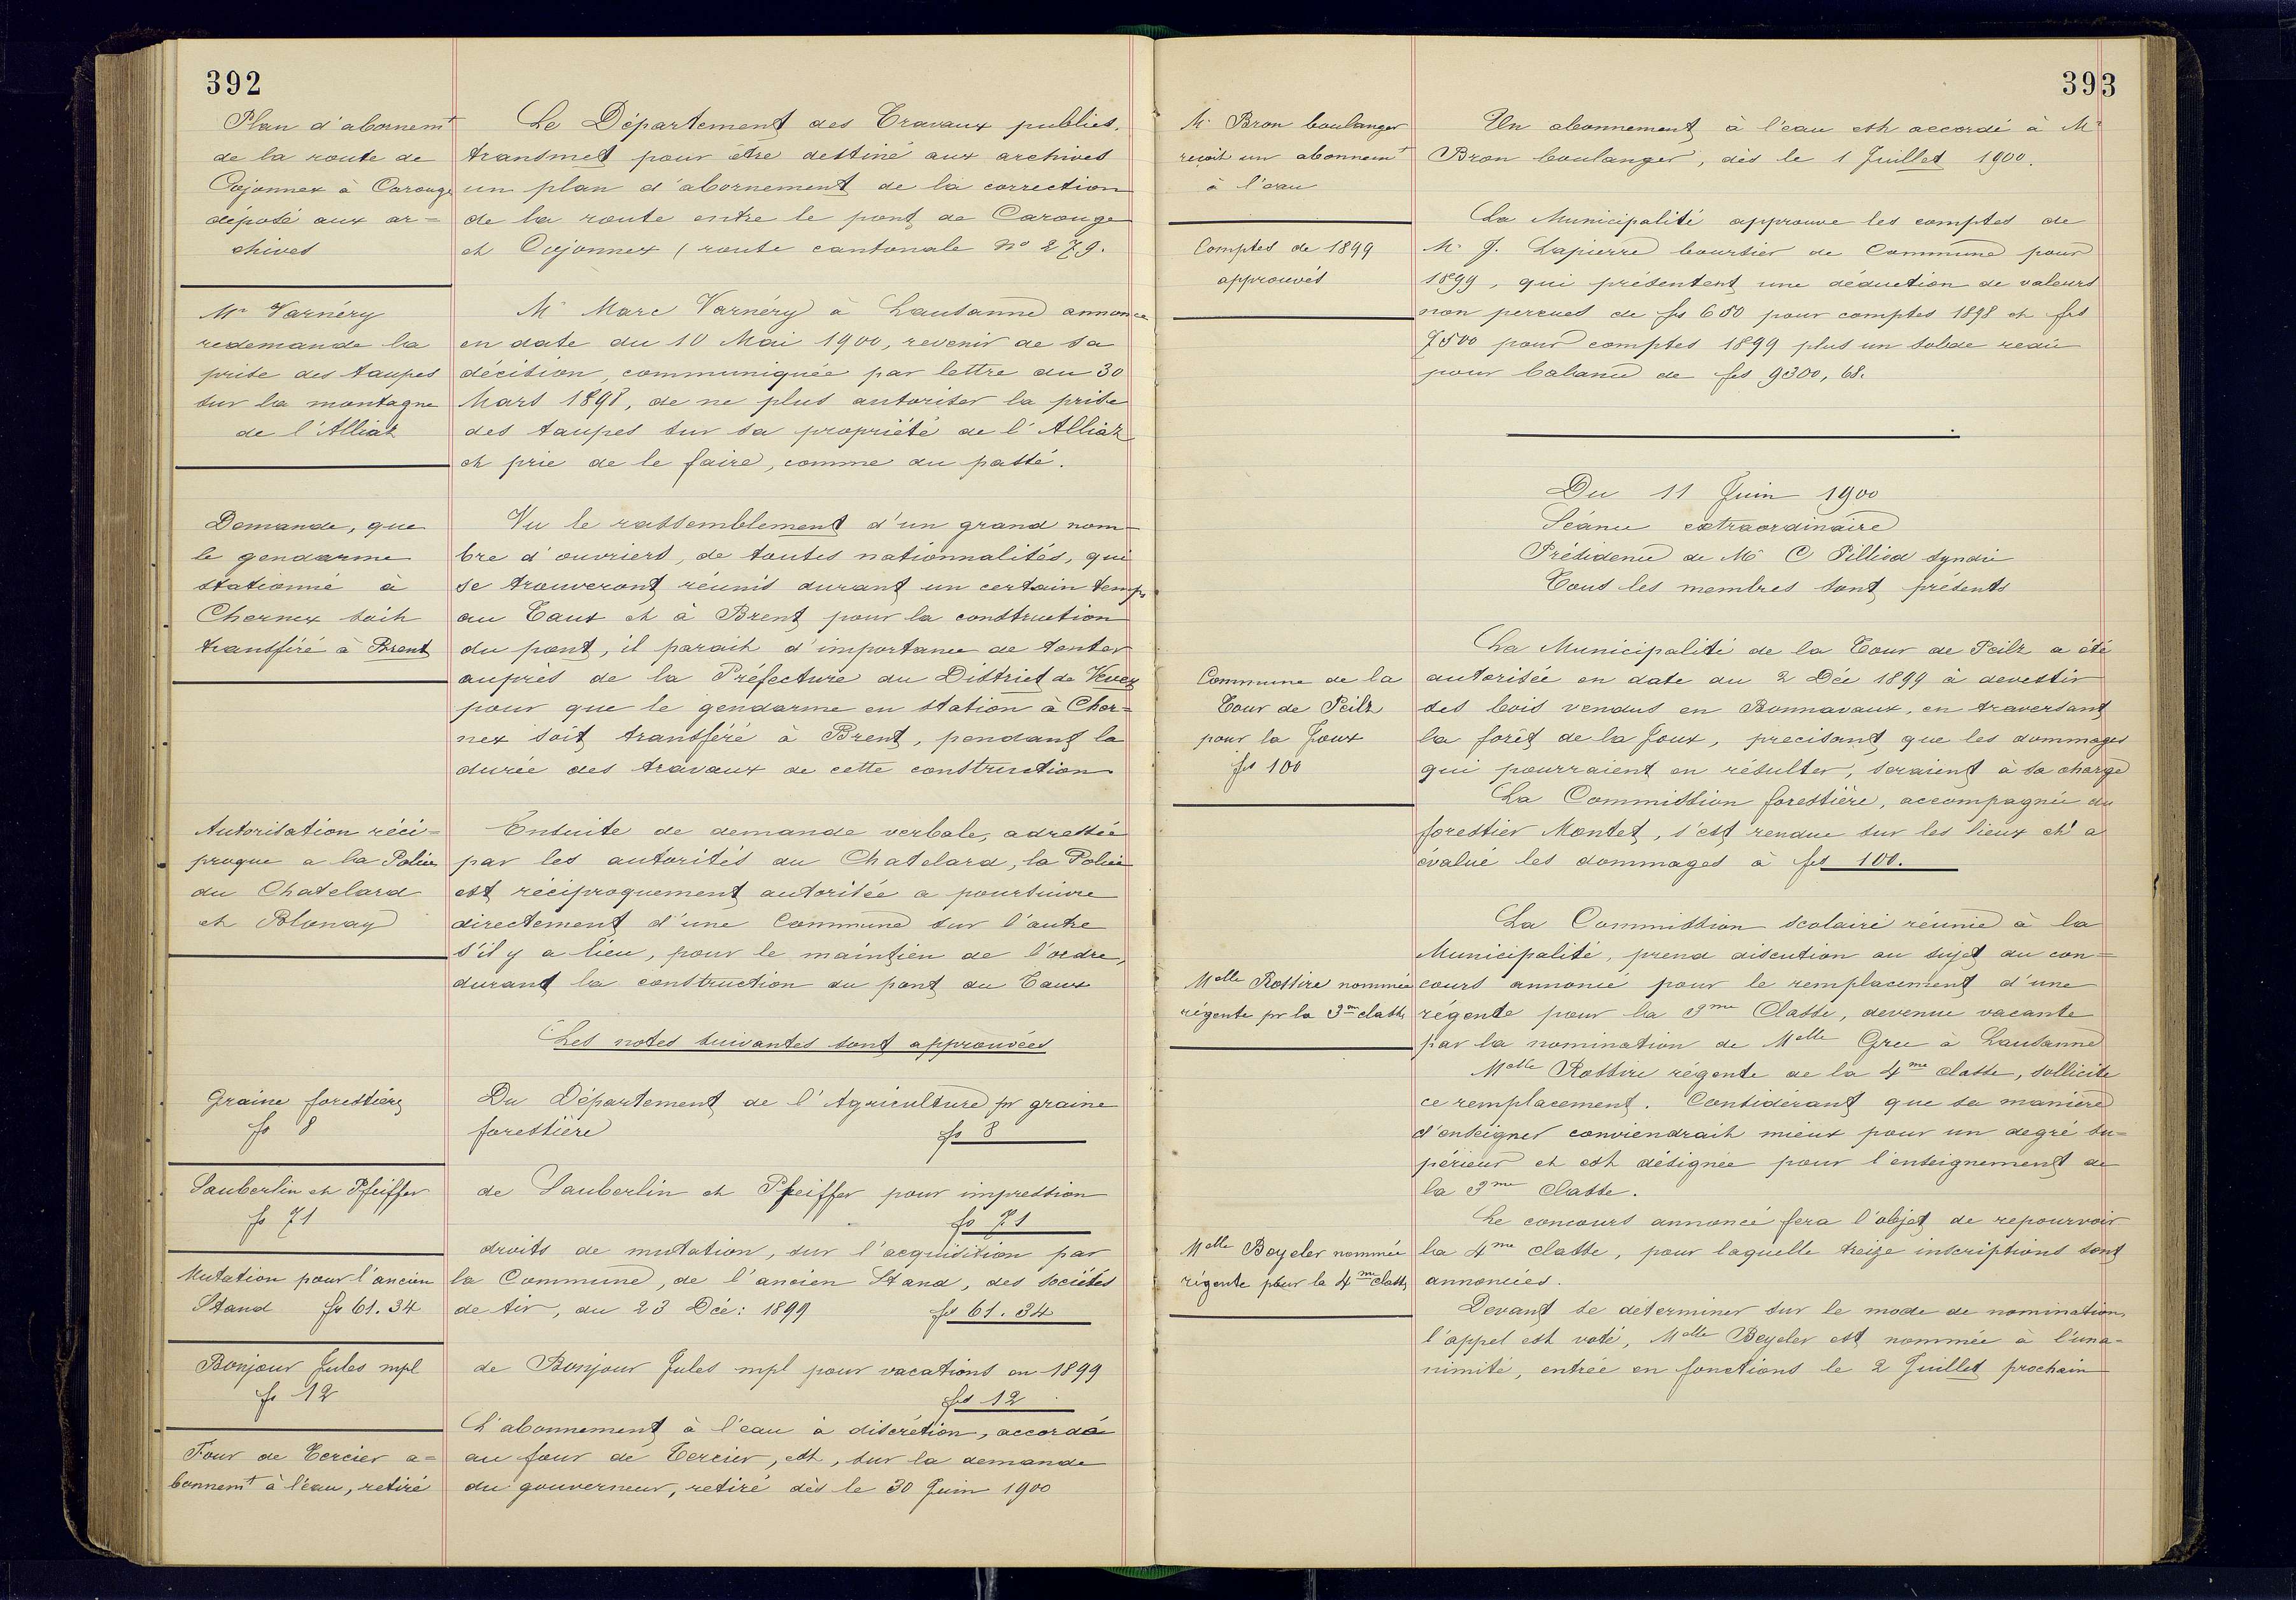 392
Plan d'abornemt
de la route de
Cojonnex à Carouge
déposé aux ar=
chives
Le Département des Travaux publics,
transmet pour être destiné aux archives
un plan d'abornement de la correction
de la route entre le pont de Carouge
et Cojonnex (route cantonale No 279.
Mr Varnéry
redemande la
prise des taupes
sur la montagne
de l'Alliaz
Mr Marc Varnéry à Lausanne annonce
en date du 10 Mai 1900, revenir de sa
décision, communiquée par lettre du 30
Mars 1898, de ne plus autoriser la prise
des taupes sur sa propriété de l'Alliaz
et prie de le faire, comme du passé.
Demande, que
le gendarme
stationné à
Chernex soit
transféré à Brent
Vu le rassemblement d'un grand nom-
bre d'ouvriers, de toutes nationnalités, qui
se trouveront réunis durant un certain temps
au Taux et à Brent pour la construction
du pont, il parait d'importance de tenter
auprès de la Préfecture du District de Vevey
pour que le gendarme en station à Cher=
nex soit transféré à Brent, pendant la
durée des travaux de cette construction
Autorisation réci=
proque a la Police
du Chatelard
et Blonay
Ensuite de demande verbale, adressée
par les autorités du Chatelard, la Police
est réciproquement autorisée a poursuivre
directement d'une Commune sur l'autre
s'il y a lieu, pour le maintien de l'ordre,
durant la construction du pont du Taux
Les notes suivantes sont approuvées
Graine forestière
fs 8
Du Département de l'Agriculture pr graine
forestière fs 8
Sauberlin et Pfeiffer
fs 71
de Sauberlin et Pfeiffer pour impression
fs 71
Mutation pour l'ancien
Stand fs 61.34
droits de mutation, sur l'acquisition par
la Commune, de l'ancien Stand, des sociétés
de tir, du 23 Déc: 1899 fs 61.34
Bonjour Jules mpl
fs 12
de Bonjour Jules mpl pour vacations en 1899
fs 12
Four de Tercier a=
bonnemt à l'eau, retiré
L'abonnement à l'eau à discrétion, accordé
au four de Tercier, est, sur la demande
du gouverneur, retiré dès le 30 Juin 1900
393
Mr Bron boulanger
reçoit un abonnemt
à l'eau
Un abonnement à l'eau est accordé à Mr
Bron boulanger, dès le 1 Juillet 1900.
Comptes de 1899
approuvés
La Municipalité approuve les comptes de
Mr J. Lapierre boursier de Commune pour
1899, qui présentent une déduction de valeurs
non perçues de fs 650 pour comptes 1898 et fs
7500 pour comptes 1899 plus un solde redû
pour balance de fs 9300,68.
Du 11 Juin 1900
Séance extraordinaire
Présidence de Mr C Pilliod syndic
Tous les membres sont présents
Commune de la
Tour de Peilz
pour la Joux
fs 100
La Municipalité de la Tour de Peilz a été
autorisée en date du 2 Déc 1899 à devestir
des bois vendus en Bonnavaux, en traversant
la forêt de la Joux, precisant que les dommages
qui pourraient en résulter, seraient à sa charge
La Commission forestière, accompagnée du
forestier Montet, s'est rendue sur les lieux et a
évalué les dommages à fs 100.
Melle Rossire nommée
régente pr la 3me classe
La Commission scolaire réunie à la
Municipalité, prend discution au sujet du con=
cours annoncé pour le remplacement d'une
régente pour la 3me Classe, devenue vacante
par la nomination de Melle Grec à Lausanne
Melle Rossire régente de la 4me classe, sollicite
ce remplacement. Considérant que sa manière
d'enseigner conviendrait mieux pour un degré su=
périeur et est désignée pour l'enseignement de
la 3me classe.
Melle Beyeler nommée
régente pour la 4me classe
Le concours annoncé fera l'objet de repourvoir
la 4me classe, pour laquelle treize inscriptions sont
annoncées.
Devant se déterminer sur le mode de nomination,
l'appel est voté, Melle Beyeler est nommée à l'una-
nimité, entrée en fonctions le 2 Juillet prochain